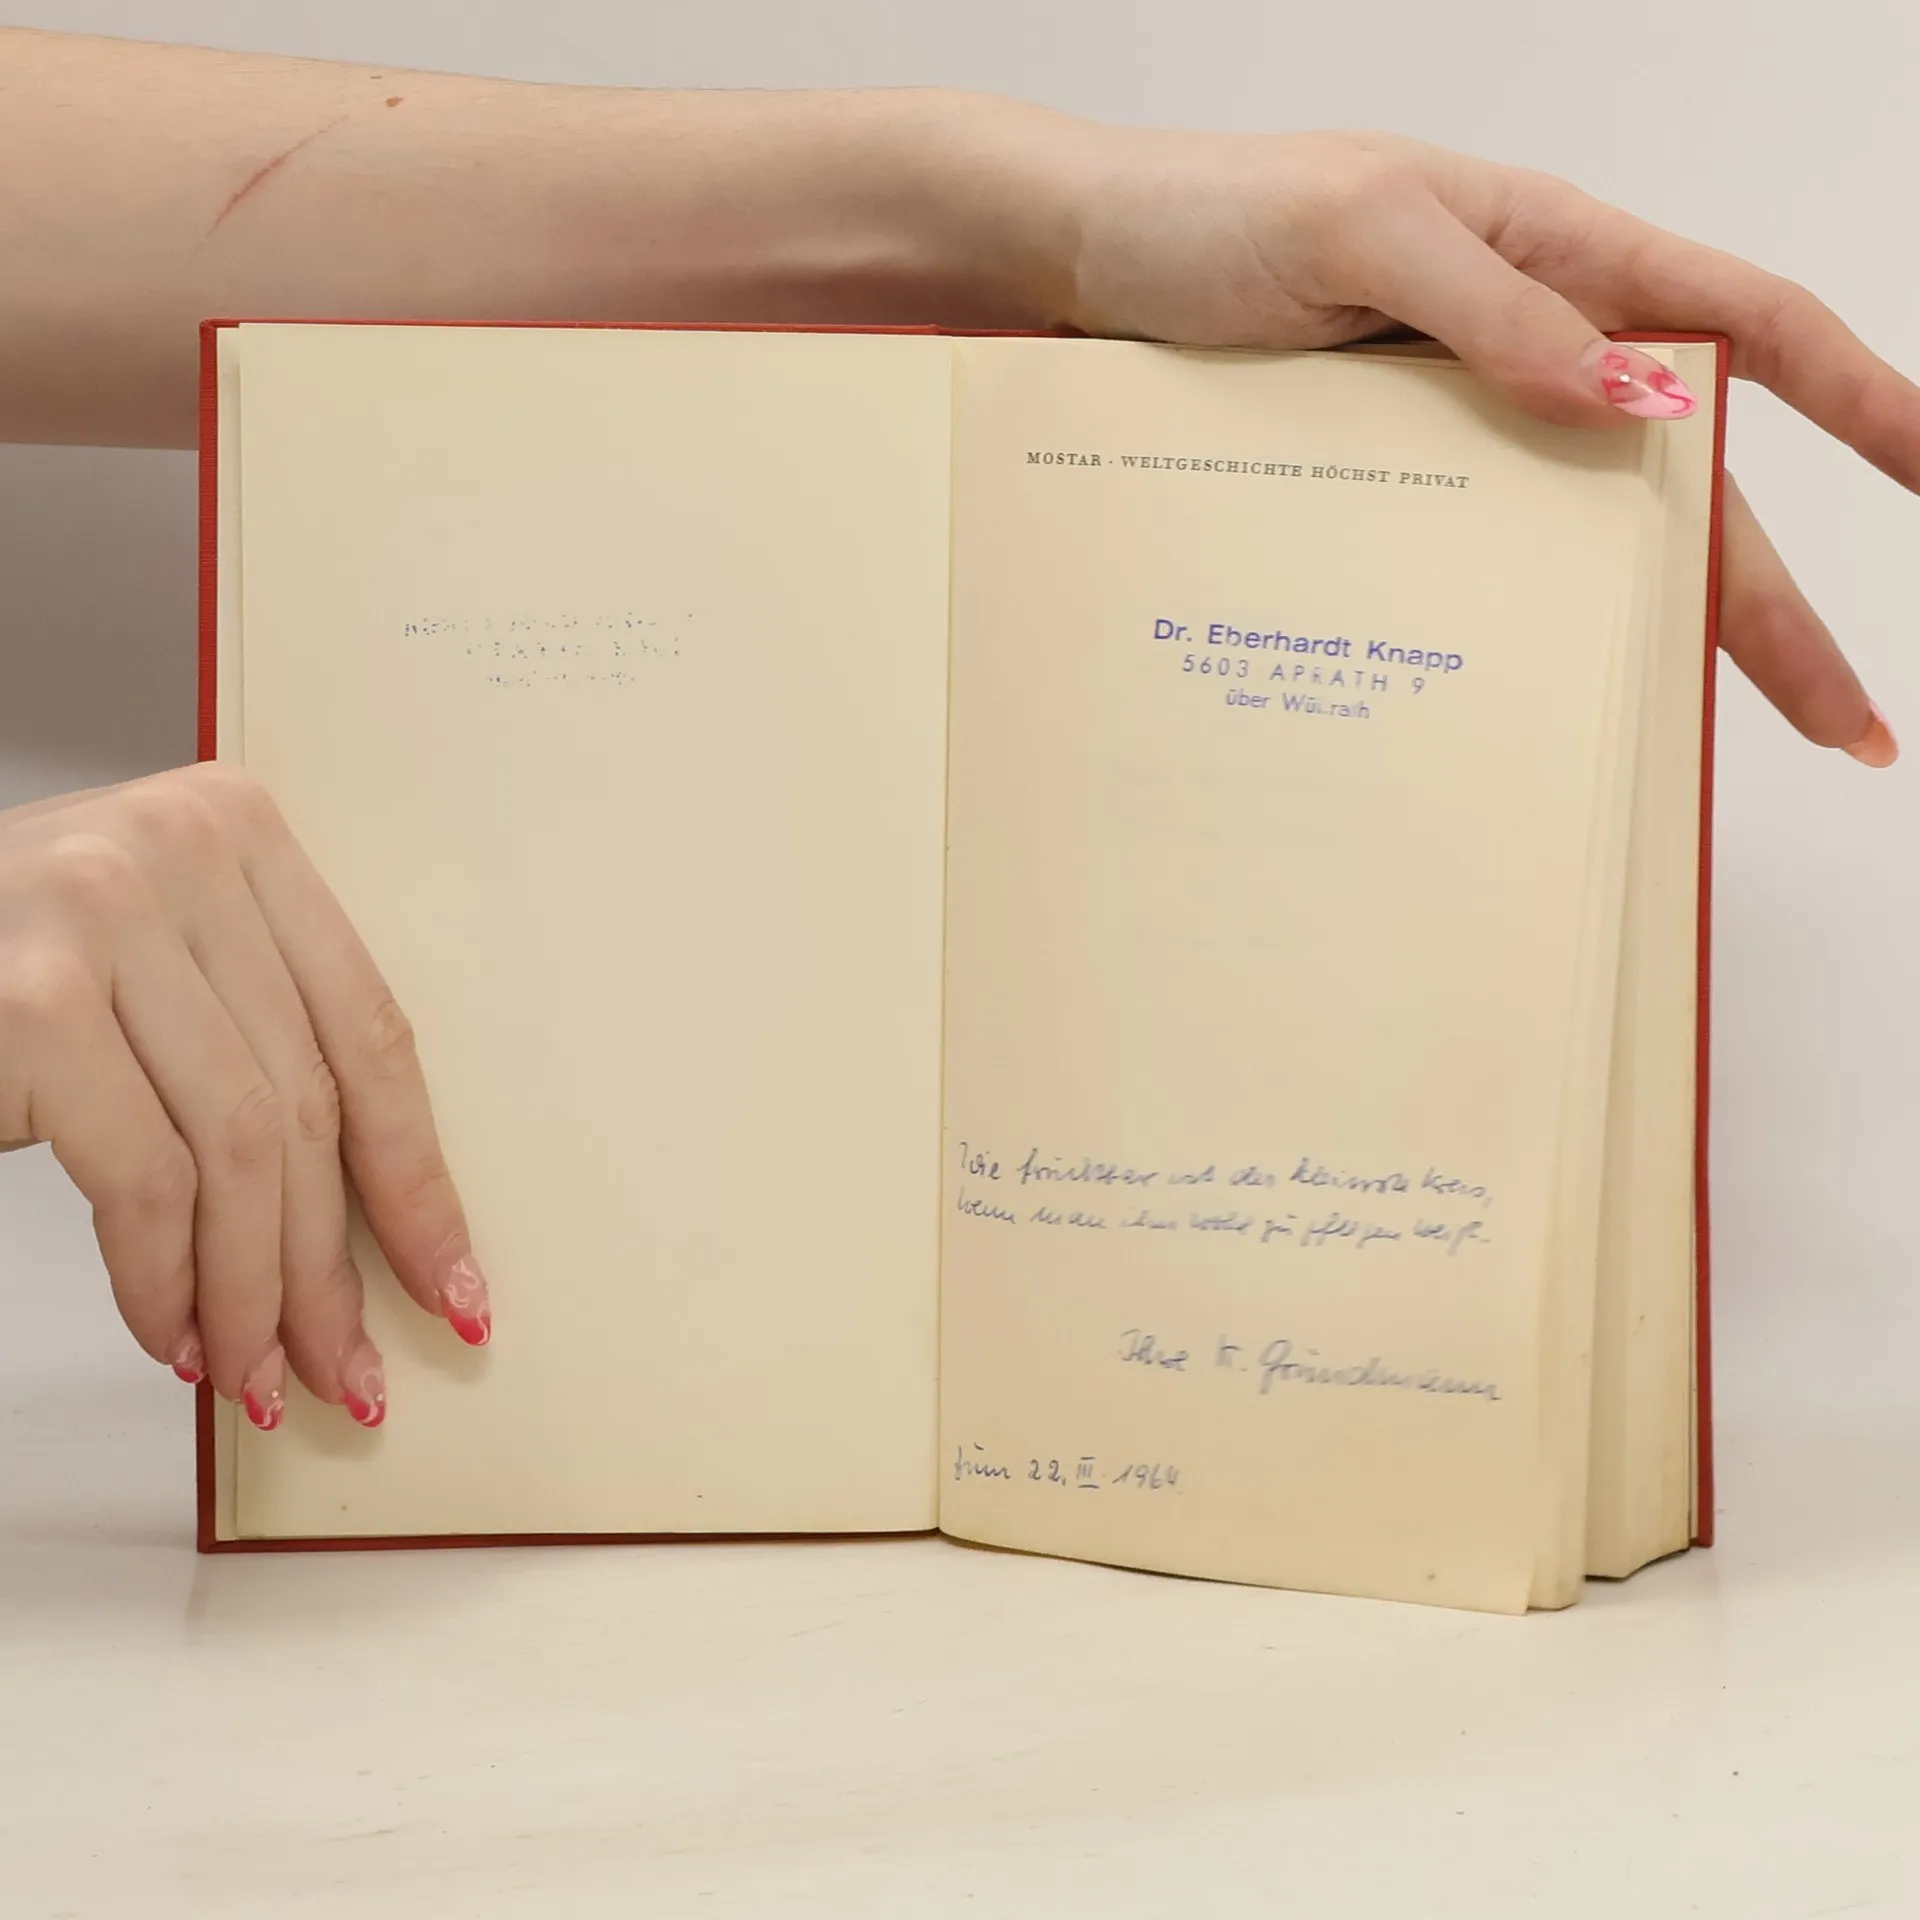 MOSTAR · WELTGESCHICHTE HÖCHST PRIVAT
Dr. Eberhardt Knapp
5603 APRATH 9
über Wülfrath
Wie fruchtbar ist der kleinste Kreis,
Wenn man ihn wohl zu pflegen weiß.
Ihre K. Gründmann
zum 22. III. 1964